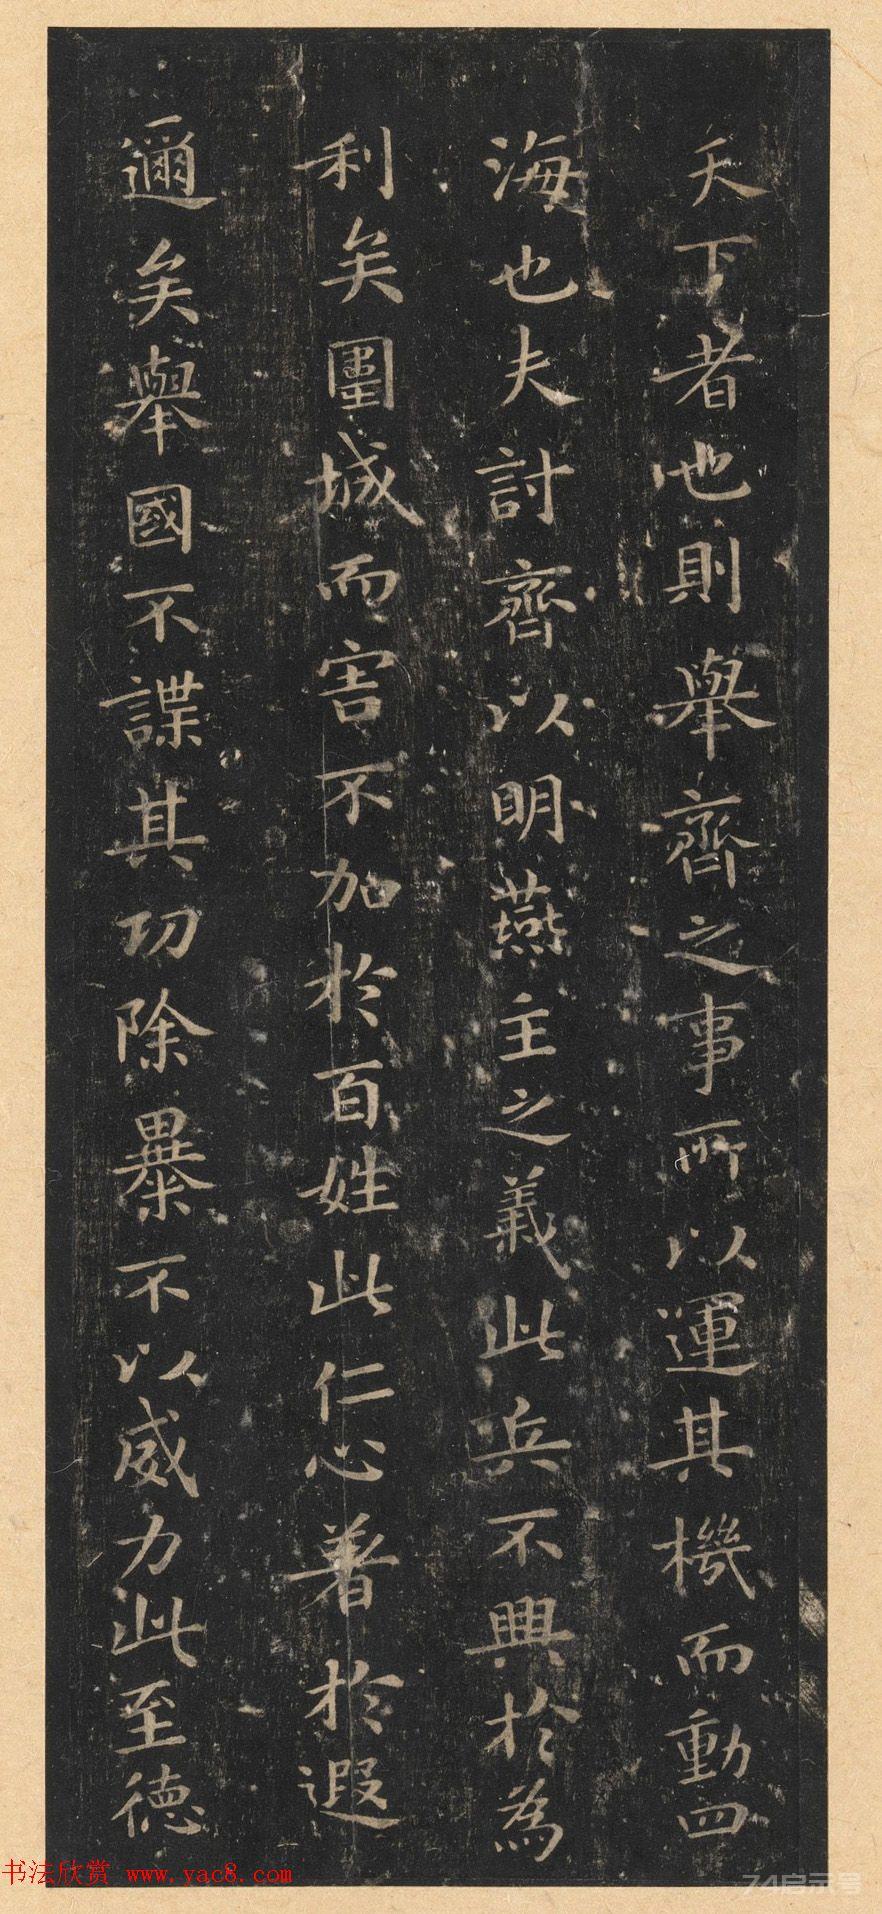 天下者也則舉齊之事所以運其機而動四
海也夫討齊以明燕主之義此兵不興於為
利矣圍城而害不加於百姓此仁心著於遐
邇矣舉國不謀其功除暴不以威力此至德
书法欣赏 www.yac8.com
74启示号